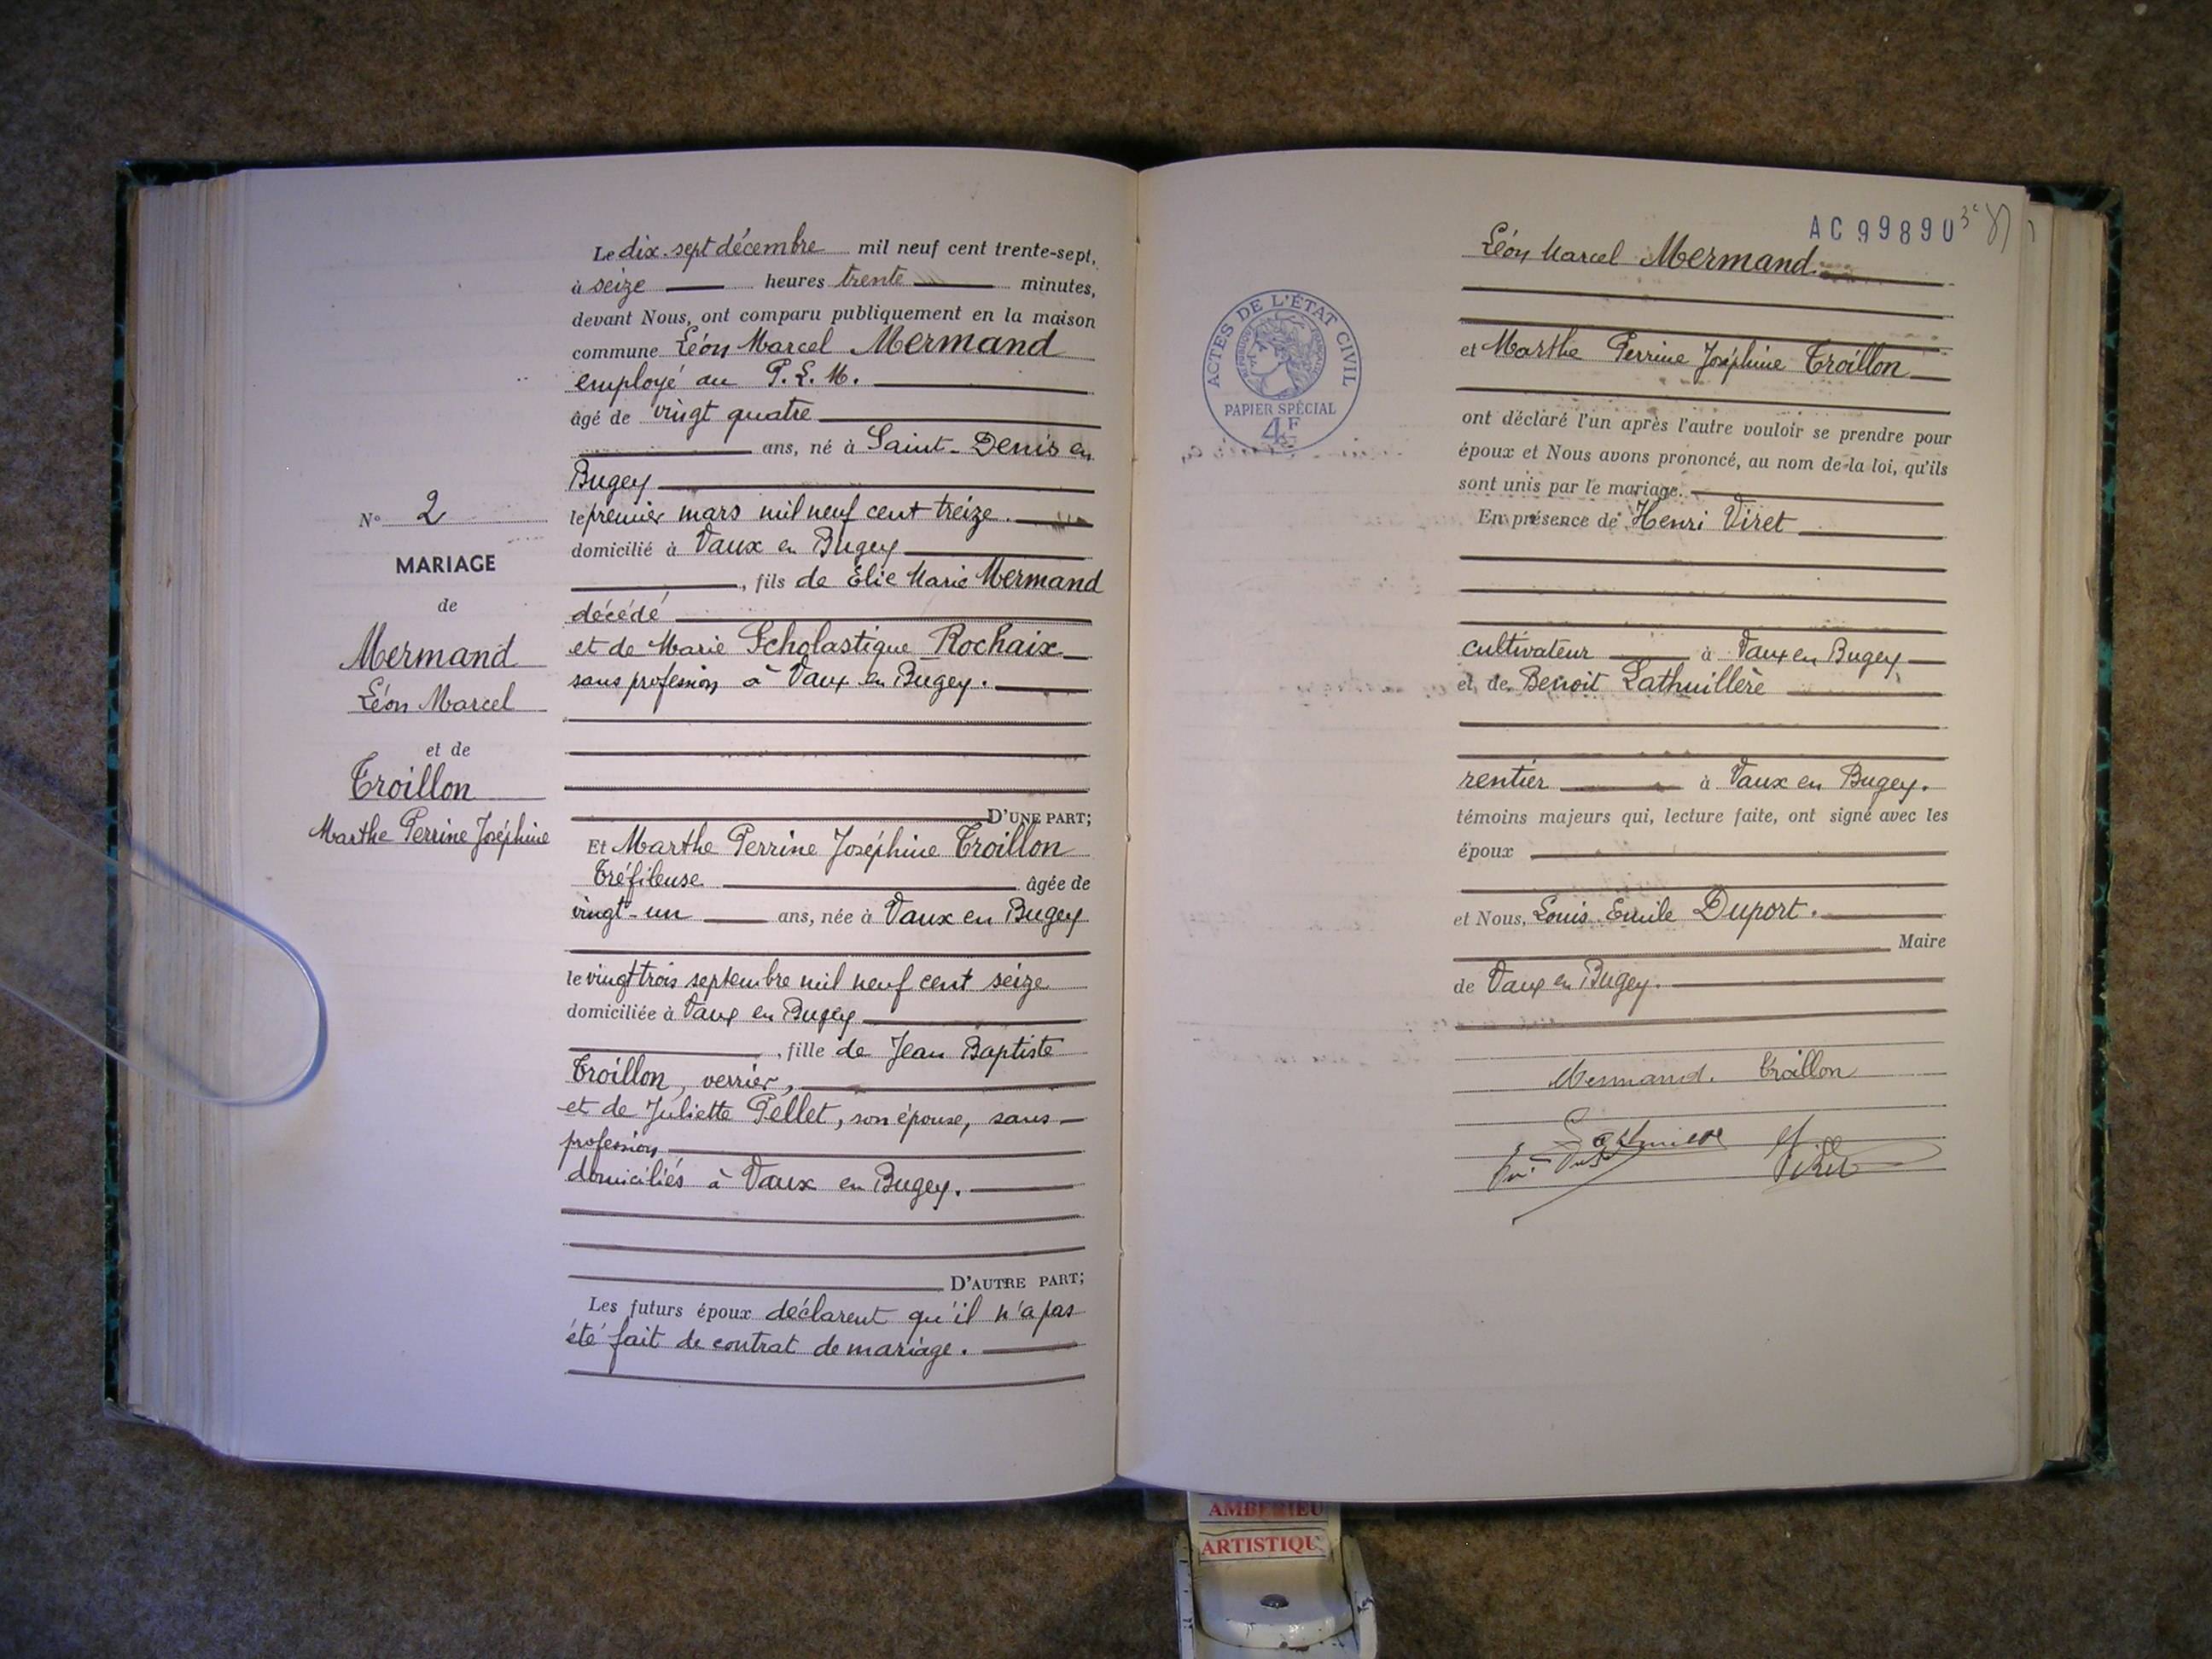 N° 2
MARIAGE
de
Mermand
Léon Marcel
et de
Troillon
Marthe Perrine Joséphine
Le dix-sept décembre mil neuf cent trente-sept,
à seize heures trente minutes,
devant Nous, ont comparu publiquement en la maison
commune Léon Marcel Mermand
employé au P.L.M.
âgé de vingt quatre
ans, né à Saint-Denis en
Bugey
le premier mars mil neuf cent treize.
domicilié à Vaux en Bugey
, fils de Élie Marie Mermand
décédé
et de Marie Scholastique Rochaix
sans profession à Vaux en Bugey.
D'UNE PART;
Et Marthe Perrine Joséphine Troillon
Tréfileuse âgée de
vingt-un ans, née à Vaux en Bugey
le vingt trois septembre mil neuf cent seize
domiciliée à Vaux en Bugey
, fille de Jean Baptiste
Troillon, verrier,
et de Juliette Pellet, son épouse, sans
profession
domiciliés à Vaux en Bugey.
D'AUTRE PART;
Les futurs époux déclarent qu'il n'a pas
été fait de contrat de mariage.
AC 99890
ACTES DE L'ÉTAT CIVIL
RÉPUBLIQUE FRANÇAISE
PAPIER SPÉCIAL
4F
Léon Marcel Mermand.
et Marthe Perrine Joséphine Troillon
ont déclaré l'un après l'autre vouloir se prendre pour
époux et Nous avons prononcé, au nom de la loi, qu'ils
sont unis par le mariage.
En présence de Henri Viret
cultivateur à Vaux en Bugey
et de Benoit Lathuillère
rentier à Vaux en Bugey.
témoins majeurs qui, lecture faite, ont signé avec les
époux
et Nous, Louis Emile Duport.
Maire
de Vaux en Bugey.
Mermand. Troillon
Viret
AMBERIEU
ARTISTIQU